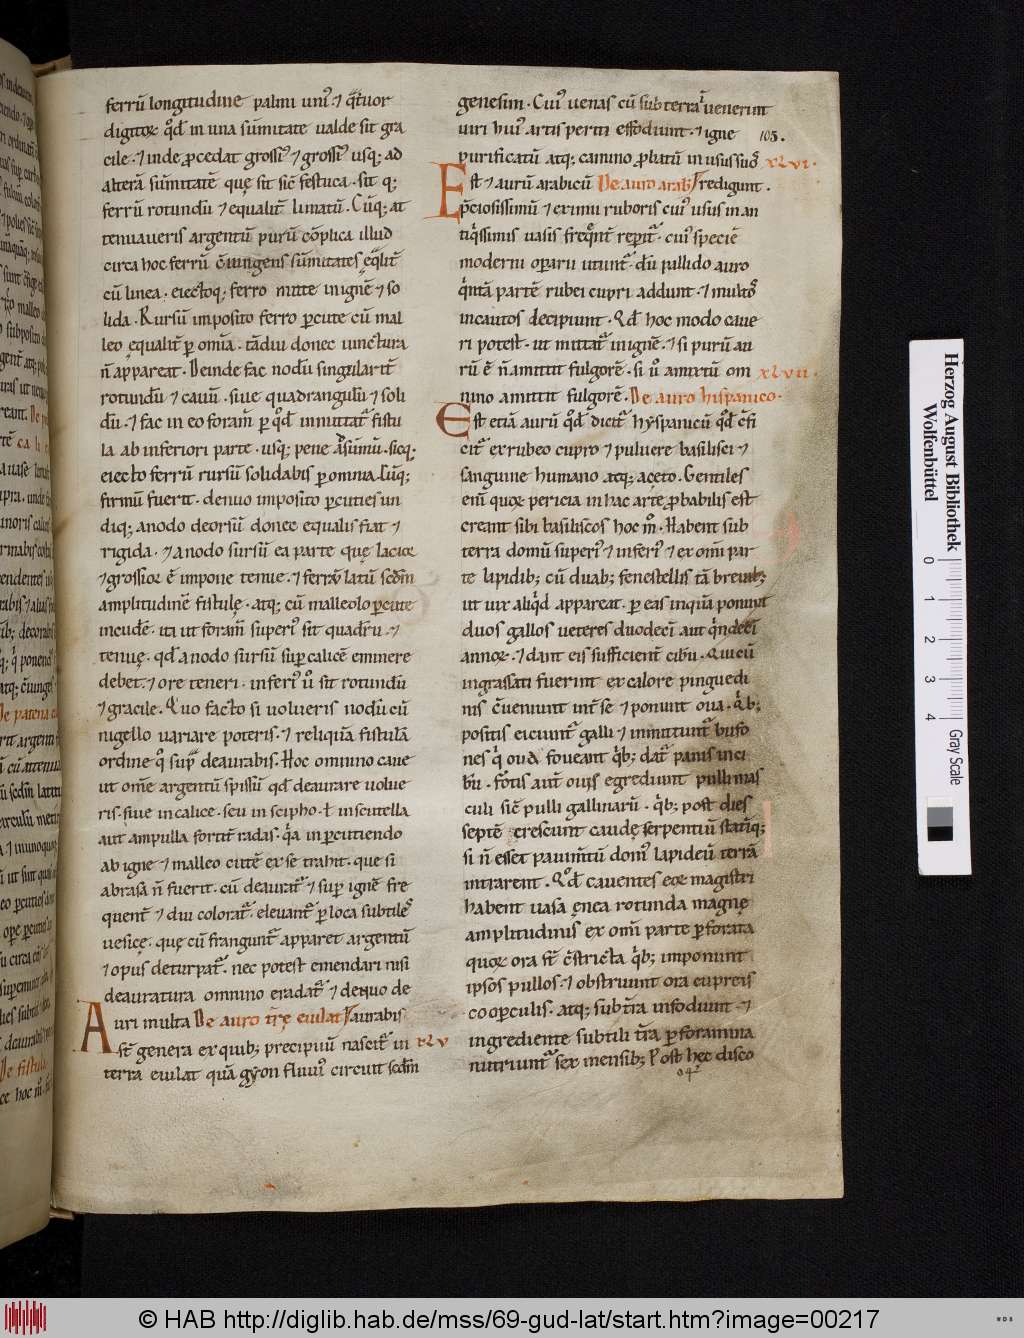 ferrū longitudine palmi uniꝰ ⁊ qͣtuor
digitoꝝ qđ in una sūmitate ualde sit gra
cile ⁊ inde ꝓcedat grossiꝰ ⁊ grossiꝰ usq; ad
alterā sūmitatē quę sit sic̄ festuca · sit q;
ferrū rotundū ⁊ equalit̄ limatū · Cūq; at
tenuaueris argentū purū cōplica illud
circa hoc ferrū c̄iungens sūmitates eq̄lit̄
cū linea · eiectoq; ferro mitte in ignē ⁊ so
lida · Rursū imposito ferro ꝑcute cū mal
leo equalit̄ ꝑ om̄ia · tādiu donec iunctura
n̄ appareat · Deinde fac nodū singularit̄
rotundū ⁊ cauū · siue quadrangulū ⁊ soli
dū · ⁊ fac in eo foram̄ ꝑ qđ inmittat᷑ fistu
la ab inferiori parte · usq; pene ad sūmū · sicq;
eiecto ferrū rursū solidabis ꝑ omnia · Cūq;
firmū fuerit · denuo imposito ꝑcuties un
diq; a nodo deorsū donec equalis fiat ⁊
rigida · ⁊ a nodo sursū ea parte quę lacior
⁊ grossior ē impone tenue · ⁊ ferrū latū scd̄m
amplitudinē fistulę · atq; cū malleolo ꝑcute
incudē · ita ut foram̄ superiꝰ sit quadrū · ⁊
tenuę · qđ a nodo sursū suꝑ calicē eminere
debet · ⁊ ore teneri · inferiꝰ ū sit rotundū
⁊ gracile · Quo facto si uolueris nodū cū
nigello uariare poteris · ⁊ reliquā fistulā
ordine qͦ supͣ deaurabis · Hoc omnino caue
ut om̄e argentū spissū qđ deaurare uolue
ris · siue in calice · seu in scipho · ł in scutella
aut ampulla fortit̄ radas · qͥa in ꝑcutiendo
ab igne ⁊ malleo cutē ex se trahit · que si
abrasa n̄ fuerit · cū deaurat᷑ ⁊ suꝑ ignē fre
quent̄ ⁊ diu colorat᷑ · eleuant᷑ ꝑ loca subtiles
uesicę · quę cū frangunt᷑ apparet argentū
⁊ opus deturpat᷑ · nec potest emendari nisi
deauratura omnino eradat᷑ ⁊ denuo de
auri multa De auro trę eiulat aurabis
Ast̄ genera ex quib; precipuū nascit᷑ in xlv
terra eiulat quā gyon fluuiꝰ circuit scd̄m
genesim · Cuiꝰ uenas cū sub terra īuenerint
uiri huiꝰ artis periti effodiunt · ⁊ igne 105.
purificatū atq; camino ꝓbatū in usus suos xlvi.
Est ⁊ aurū arabicū De auro arab̄ redigunt ·
p̄ciosissimū ⁊ eximii ruboris cuiꝰ usus in an
tiqͥssimis uasis freqͣnt̄ reperit᷑ · cuiꝰ speciē
moderni operarii utunt᷑ · dū pallido auro
qͥntā partē rubei cupri addunt · ⁊ multos
incautos decipiunt · Qđ hoc modo caue
ri potest · ut mittat᷑ in ignē · ⁊ si purū au
rū ē n̄ amittit fulgorē · si ū amixtū om xlvii.
nino amittit fulgorē · De auro hispanico ·
Est etiā aurū qđ dicit᷑ hyspanicū qđ c̄fi
cit᷑ ex rubeo cupro ⁊ puluere basilisci ⁊
sanguine humano atq; aceto · Gentiles
enī quoꝝ pericia in hac arte ꝓbabilis est
creant sibi basiliscos hoc m̊ · Habent sub
terra domū superiꝰ ⁊ inferiꝰ ⁊ ex om̄i par
te lapidib; cū duab; fenestellis tā breuib;
ut uix aliqͥd appareat · ꝑ eas in quā ponunt
duos gallos ueteres duodeci aut qͥndeci
annoꝝ · ⁊ dant eis sufficient̄ cibū · Qui cū
ingrassati fuerint ex calore pinguedi
nis c̄ueniunt int̄ se ⁊ ponunt oua · Qͥb;
positis eiciunt᷑ galli ⁊ inmittunt᷑ bufo
nes qͥ oua foueant qͥb; dat᷑ panis in ci
bū · Fotis aut̄ ouis egrediunt pulli mas
culi sic̄ pulli gallinarū · qͥb; post dies
septē crescunt caudę serpentiū statīq;
si n̄ esset pauim̄tū domꝰ lapideū terrā
intrarent · Qđ cauentes eoꝝ magistri
habent uasa ęnea rotunda magnę
amplitudinis ex om̄i parte ꝑforata
quoꝝ ora st̄ c̄stricta qͥb; imponunt
ipsos pullos · ⁊ obstruunt ora cupreis
cooperculis · atq; sub t̄ra infodiunt · ⁊
ingrediente subtili t̄ra ꝑ foramina
nutriunt᷑ sex mensib; Post hęc disco
Herzog August Bibliothek
Wolfenbüttel
0 1 2 3 4
Gray Scale
© HAB http://diglib.hab.de/mss/69-gud-lat/start.htm?image=00217